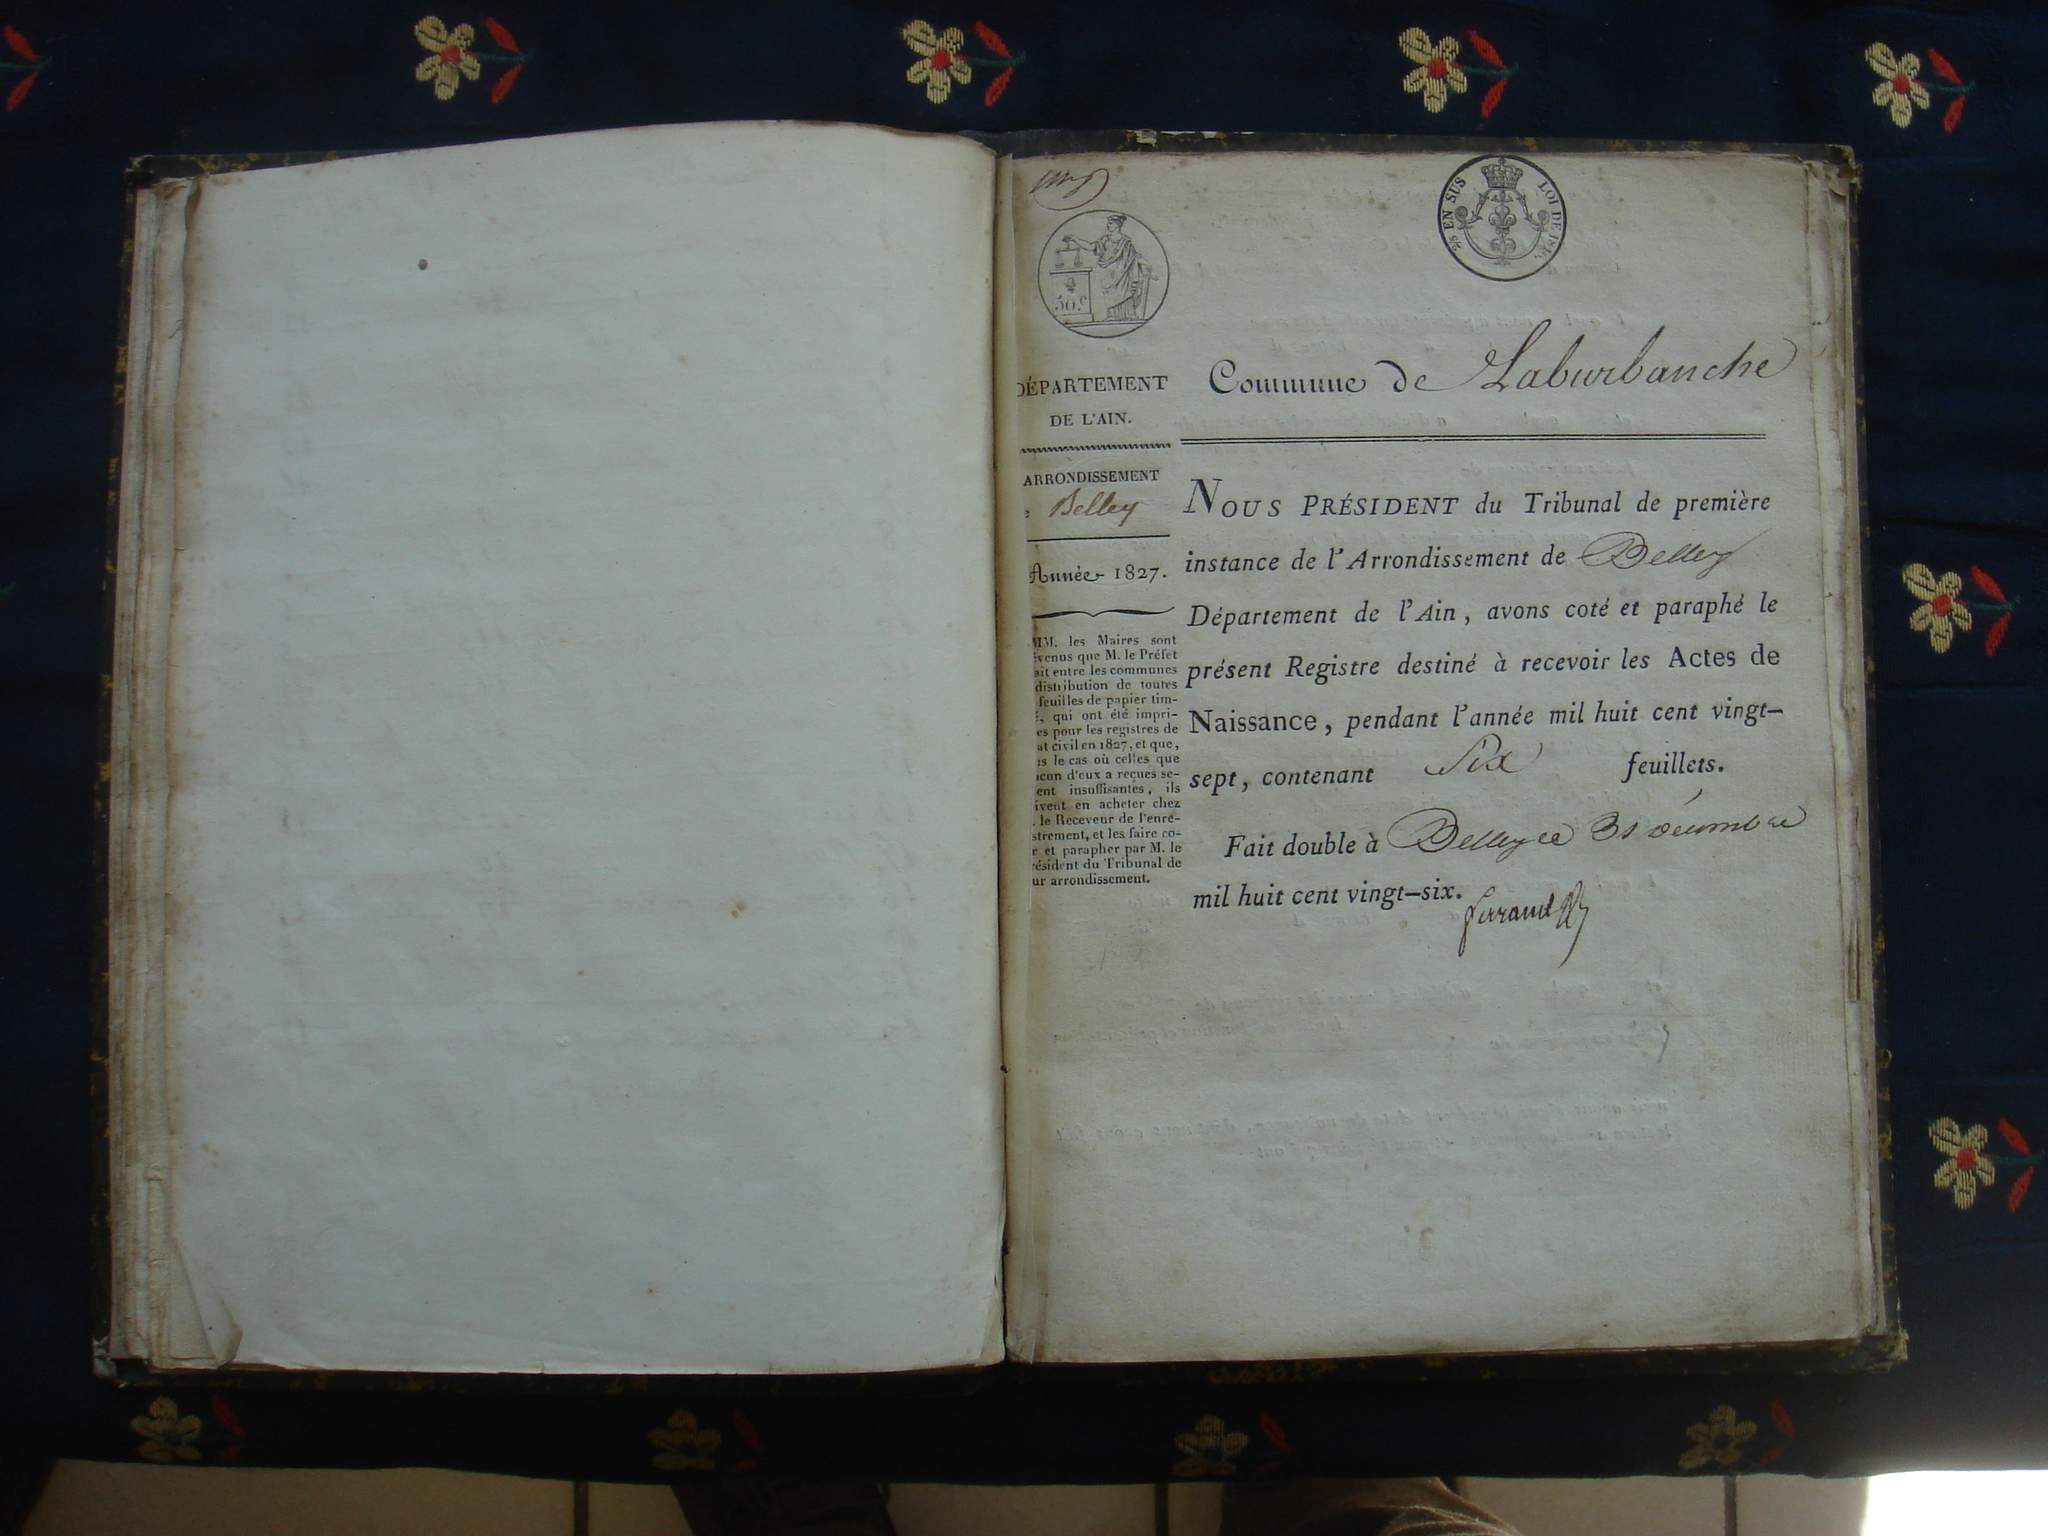 50 C.
2/5 EN SUS LOI DE
DÉPARTEMENT
DE L'AIN.
ARRONDISSEMENT
Belley
Année 1827.
MM. les Maires sont
évenus que M. le Préfet
ait entre les communes
distribution de toutes
feuilles de papier tim-
é, qui ont été impri-
es pour les registres de
at civil en 1827, et que,
ns le cas où celles que
acun d'eux a reçues se-
ent insuffisantes, ils
ivent en acheter chez
. le Receveur de l'enre-
strement, et les faire co-
r et parapher par M. le
résident du Tribunal de
ur arrondissement.
Commune de Laburbanche
NOUS PRÉSIDENT du Tribunal de première
instance de l'Arrondissement de Belley
Département de l'Ain, avons coté et paraphé le
présent Registre destiné à recevoir les Actes de
Naissance, pendant l'année mil huit cent vingt-
sept, contenant Six feuillets.
Fait double à Belley ce 31 décembre
mil huit cent vingt-six.